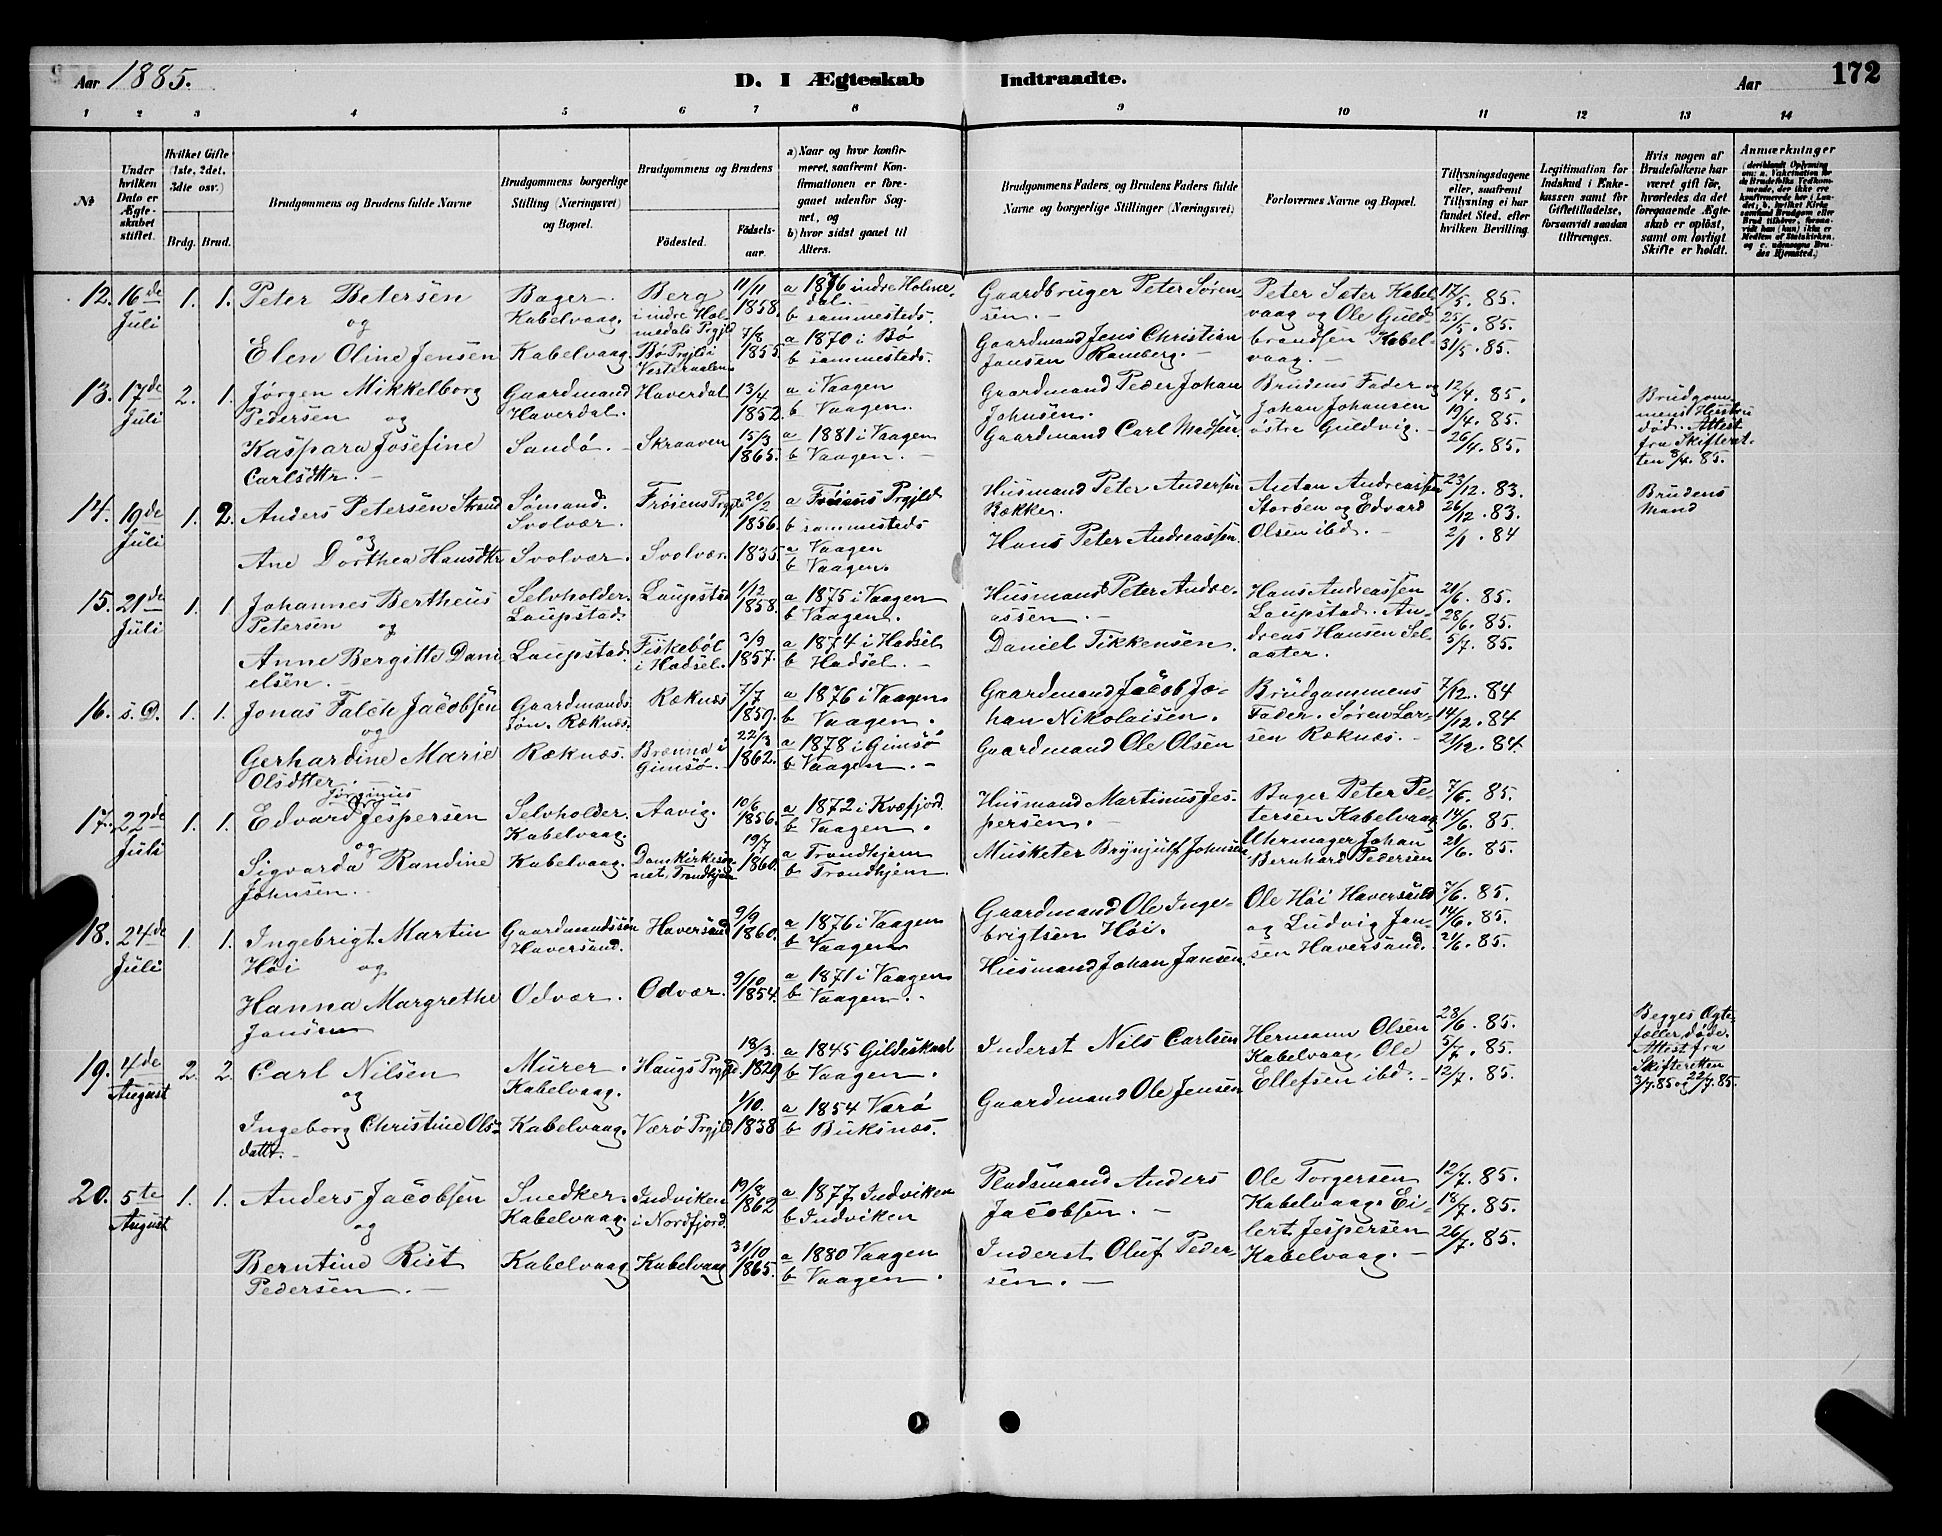 Aar 1885.
D. I Ægteskab Indtraadte.
Aar
172
1 2 3 4 5 6 7 8 9 10 11 12 13 14
No
Under hvilken Dato er Ægteskabet stiftet.
Hvilket Gifte (1ste, 2det, 3die osv.)
Brdg. Brud.
Brudgommens og Brudens fulde Navne
Brudgommens borgerlige Stilling (Næringsvei) og Bopæl.
Brudgommens og Brudens
Fødested.
Fødselsaar.
a) Naar og hvor konfirmeret, saafremt Konfirmationen er foregaaet udenfor Sognet, og
b) hvor sidst gaaet til Alters.
Brudgommens Faders og Brudens Faders fulde Navne og borgerlige Stillinger (Næringsvei)
Forlovernes Navne og Bopæl.
Tillysningsdagene eller, saafremt Tillysning ei har fundet Sted, efter hvilken Bevilling.
Legitimation for Indskud i Enkekassen samt for Giftetilladelse, forsaavidt saadan tiltrænges.
Hvis nogen af Brudefolkene har været gift før, hvorledes da det foregaaende Ægteskab er opløst, samt om lovligt Skifte er holdt.
Anmærkninger
12. 16de Juli 1. 1.
Peter Petersen
og
Elen Oline Jensen
Bager. Kabelvaag.
Kabelvaag.
Berg i indre Holmedals Prgjld
Bø Prgjld i Vesteraalen
11/11 1858.
7/8 1855.
a 1876 indre Holmedal.
b sammesteds.
a 1870 i Bø
b sammesteds.
Gaardbruger Peter Sørensen. -
Gaardmand Jens Christian Jansen Ramberg. -
Peter Sæter Kabelvaag og Ole Guldbrandsen Kabelvaag. -
17/5. 85.
25/5. 85.
31/5. 85.
13. 17de Juli 2. 1.
Jørgen Mikkelborg
Pedersen og
Kaspara Josefine
Carlsdtr. -
Gaardmand Haverdal.
Sandø. -
Haverdal
Skraaven
13/4 1852.
15/3 1865.
a i Vaagen
b Vaagen.
a 1881 i Vaagen
b Vaagen. -
Gaardmand Peder Johan Johnsen.
Gaardmand Carl Madsen.
Brudens Fader og Johan Johansen østre Guldvig. -
12/4. 85.
19/4. 85.
26/4. 85.
Brudgommens Hustru død. Attest fra Skifteretten 8/4. 85.
14. 19de Juli 1. 2.
Anders Petersen Strand
og
Ane Dorthea Hansdtr
Sømand. Svolvær.
Svolvær.
Frøiens Prgjld
Svolvær.
20/2 1856.
1835.
a Frøiens Prgjld
b sammesteds
a Vaagen
b Vaagen.
Husmand Peter Andersen Række.
Hans Peter Andreassen.
Antan Andreassen Storøen og Edvard Olsen ibd. -
23/12. 83.
26/12. 83.
2/1. 84
Brudens Mand
15. 21de Juli 1. 1.
Johannes Bertheus
Petersen og
Anne Bergitte Danielsen. -
Selvholder. Laupstad.
Laupstad.
Laupstad
Fiskebøl i Hadsel.
1/12 1858.
3/9 1857.
a 1875 i Vaagen
b Vaagen.
a 1874 i Hadsel
b Hadsel. -
Husmand Peter Andreassen. -
Daniel Tikkensen.
Hans Andreassen Laupstad. Andreas Hansen Selaater.
21/6. 85.
28/6. 85.
5/7. 85.
16. s. D. 1. 1.
Jonas Falch Jacobsen
og
Gerhardine Marie
Olsdtter. -
Gaardmands Søn. Reknæs.
Ræknæs.
Ræknæs
Brenna i Gimsø.
7/7 1859.
22/3 1862.
a 1876 i Vaagen
b Vaagen.
a 1878 i Gimsø
b Vaagen. -
Gaardmand Jacob Johan Nikolaisen.
Gaardmand Ole Olsen
Brudgommens Fader. Søren Larsen Ræknæs. -
7/12. 84
14/12. 84
21/12. 84
17. 22de Juli 1. 1.
Jørginus
Edvard Jespersen
og
Sigvarda Randine
Johnsen. -
Selvholder. Kabelvaag.
Kabelvaag.
Aavig.
Domkirkesognet, Trondhjem
10/6 1856.
19/7 1860.
a 1872 i Kvæfjord.
b Vaagen.
a Trondhjem
b Trondhjem.
Husmand Martinus Jespersen.
Musketer Brynjulf Johnsen
Bager Peter Petersen Kabelvaag Uhrmager Johan Bernhard Pedersen
7/6. 85.
14/6. 85.
21/6. 85.
18. 24de Juli 1. 1.
Ingebrigt Martin
Høi og
Hanna Margrethe
Jansen
Gaardmandssøn Haversand.
Odvær.
Haversand
Odvær.
9/9 1860.
9/10 1854.
a 1876 i Vaagen
b Vaagen
a 1871 i Vaagen
b Vaagen. -
Gaardmand Ole Ingebrigtsen Høi.
Husmand Johan Jansen.
Ole Høi Haversand og Ludvig Jansen Haversand.
7/6. 85.
14/6. 85.
21/6. 85.
19. 4de August 2. 2.
Carl Nilsen
og
Ingeborg Christine Olsdattr. -
Murer. Kabelvaag.
Kabelvaag.
Haugs Prgjld.
Værø Prgjld
18/3. 1829
1/10. 1838
a 1845 Gildeskaal
b Vaagen.
a 1854 Værø
b Buksnæs.
Inderst Nils Carlsen
Gaardmand Ole Jensen
Hermann Olsen Kabelvaag, Ole Ellefsen ibd. -
28/6. 85.
5/7. 85.
12/7. 85.
Begges Ægtefæller døde. Attest fra Skifteretten 3/7.85 og 22/7.85.
20. 5te August 1. 1.
Anders Jacobsen
og
Berntine Rist
Pedersen. -
Snedker. Kabelvaag.
Kabelvaag
Indviken i Nordfjord.
Kabelvaag
19/8 1862
31/10 1865.
a 1877 Indviken
b Indviken
a 1880 Vaagen
b Vaagen.
Pladsmand Anders Jacobsen. -
Inderst Oluf Pedersen. -
Ole Torgersen Kabelvaag. Eilert Jespersen Kabelvaag. -
12/7. 85.
18/7. 85.
26/7. 85.